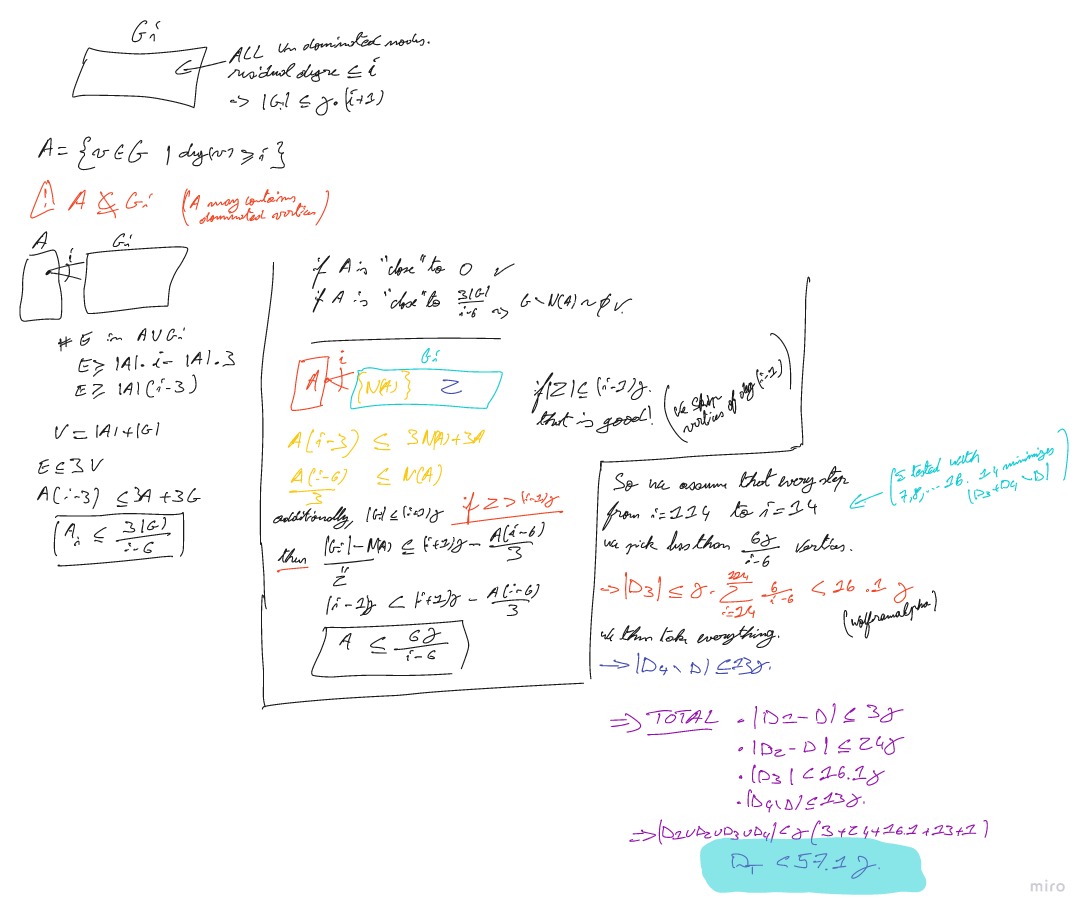 Gi
ALL un dominated nodes.
residual degree ≤ i
→ |Gi| ≤ γ·(i+1)
A = {v∈G | deg(v) ≥ i}
⚠ A ⊄ Gi (A may contains dominated vertices)
A
Gi
i
# E in A∪Gi
E ≥ |A|·i - |A|·3
E ≥ |A|(i-3)
V = |A|+|G|
E ≤ 3V
A(i-3) ≤ 3A + 3G
Ai ≤ 3|G|/(i-6)
if A is "close" to 0 ✓
if A is "close" to 3|G|/(i-6) ⇝ G∖N(A) ~ ∅ ✓.
A
i
Gi
{N(A)}
Z
if |Z| ≤ (i-1)γ.
that is good!
(we skip vertices of deg (i-1))
A(i-3) ≤ 3N(A)+3A
A(i-6)/3 ≤ N(A)
additionally, |Gi| ≤ (i+1)γ if Z > (i-1)γ
then |Gi| - N(A) ≤ (i+1)γ - A(i-6)/3
Z
(i-1)γ < (i+1)γ - A(i-6)/3
A ≤ 6γ/(i-6)
So we assume that every step
from i=114 to i=14
we pick less than 6γ/(i-6) vertices.
(I tested with 7,8,... 16. 14 minimizes |D3+D4∖D|)
→ |D3| ≤ γ·∑ i=14 6/(i-6) < 16.1 γ
(wolframalpha)
we then take everything.
→ |D4∖D| ≤ 13γ.
⇒ TOTAL · |D1-D| ≤ 3γ
· |D2-D| ≤ 24γ
· |D3| < 16.1γ
· |D4∖D| ≤ 13γ.
⇒ |D1∪D2∪D3∪D4| ≤ γ(3+24+16.1+13+1)
≤ 57.1 γ.
miro